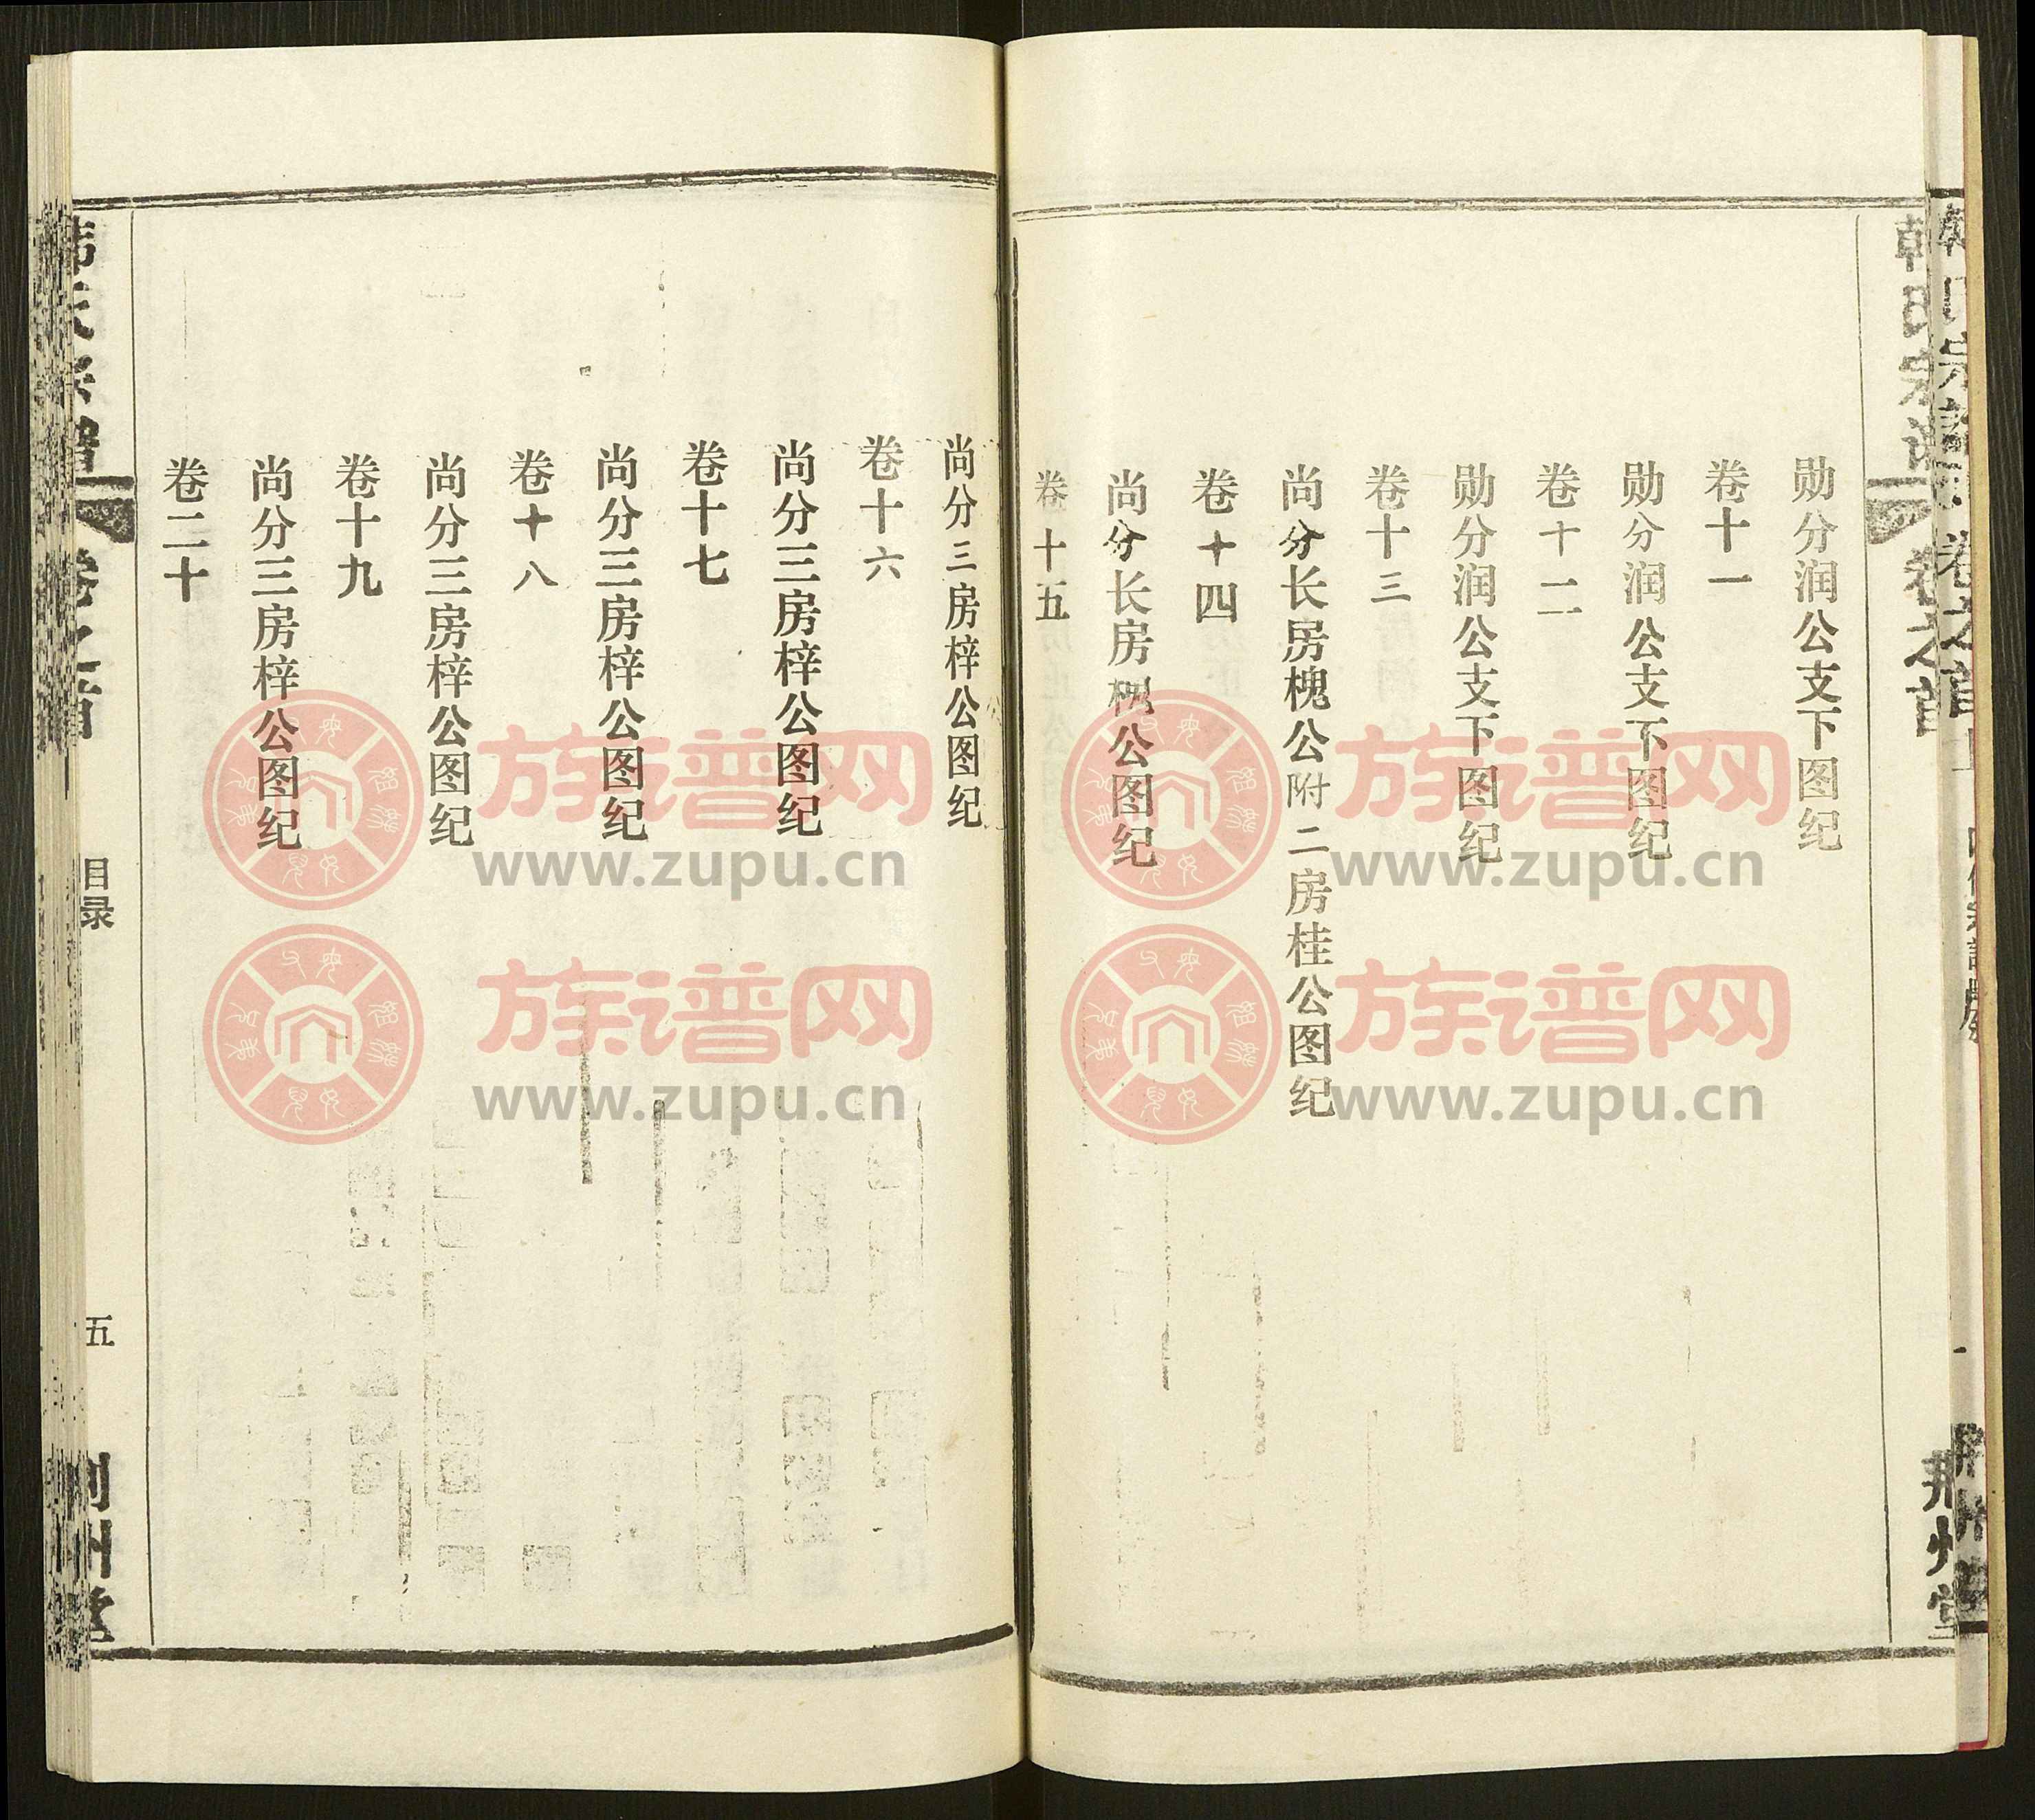 韩氏宗谱
卷之首
荆州堂
勋分润公支下图纪
卷十一
勋分润公支下图纪
卷十二
勋分润公支下图纪
卷十三
尚分长房槐公附二房桂公图纪
卷十四
尚分长房槐公图纪
卷十五
尚分三房梓公图纪
卷十六
尚分三房梓公图纪
卷十七
尚分三房梓公图纪
卷十八
尚分三房梓公图纪
卷十九
尚分三房梓公图纪
卷二十
韩氏宗谱
卷之首
目录
五
荆州堂
族谱网
www.zupu.cn
族谱网
www.zupu.cn
族谱网
www.zupu.cn
族谱网
www.zupu.cn